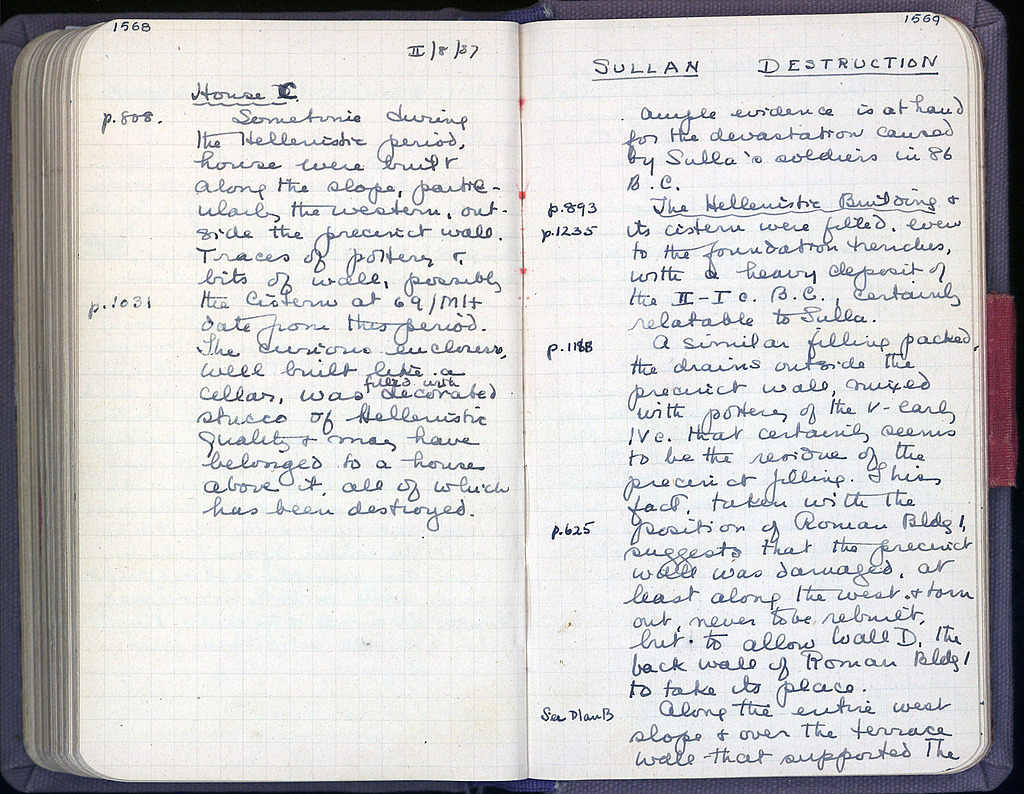 1568
II/8/37
House C.
p.808. Sometime during
the Hellenistic period,
house were built
along the slope, partic-
ularly the western, out-
side the precinct wall.
Traces of pottery &
bits of wall, possibly
p.1031 the Cistern at 69/MH
date from this period.
The curious enclosure,
well built like a
filled with
cellar, was decorated
stucco of Hellenistic
quality & may have
belonged to a house
above it, all of which
has been destroyed.
1569
SULLAN DESTRUCTION
Ample evidence is at hand
for the devastation caused
by Sulla's soldiers in 86
B.C.
p.893 The Hellenistic Building &
p.1235 its cistern were filled, even
to the foundation trenches,
with a heavy deposit of
the II-I c. B.C., certainly
relatable to Sulla.
p.1188 A similar filling packed,
the drains outside the
precinct wall, mixed
with pottery of the V-early
IVc. that certainly seems
to be the residue of the
precinct filling. This
fact, taken with the
p.625 position of Roman Bldg 1,
suggests that the precinct
wall was damaged, at
least along the west & torn
out, never to be rebuilt,
but to allow Wall D, the
back wall of Roman Bldg 1
to take its place.
See Plan B Along the entire west
slope & over the terrace
wall that supported The